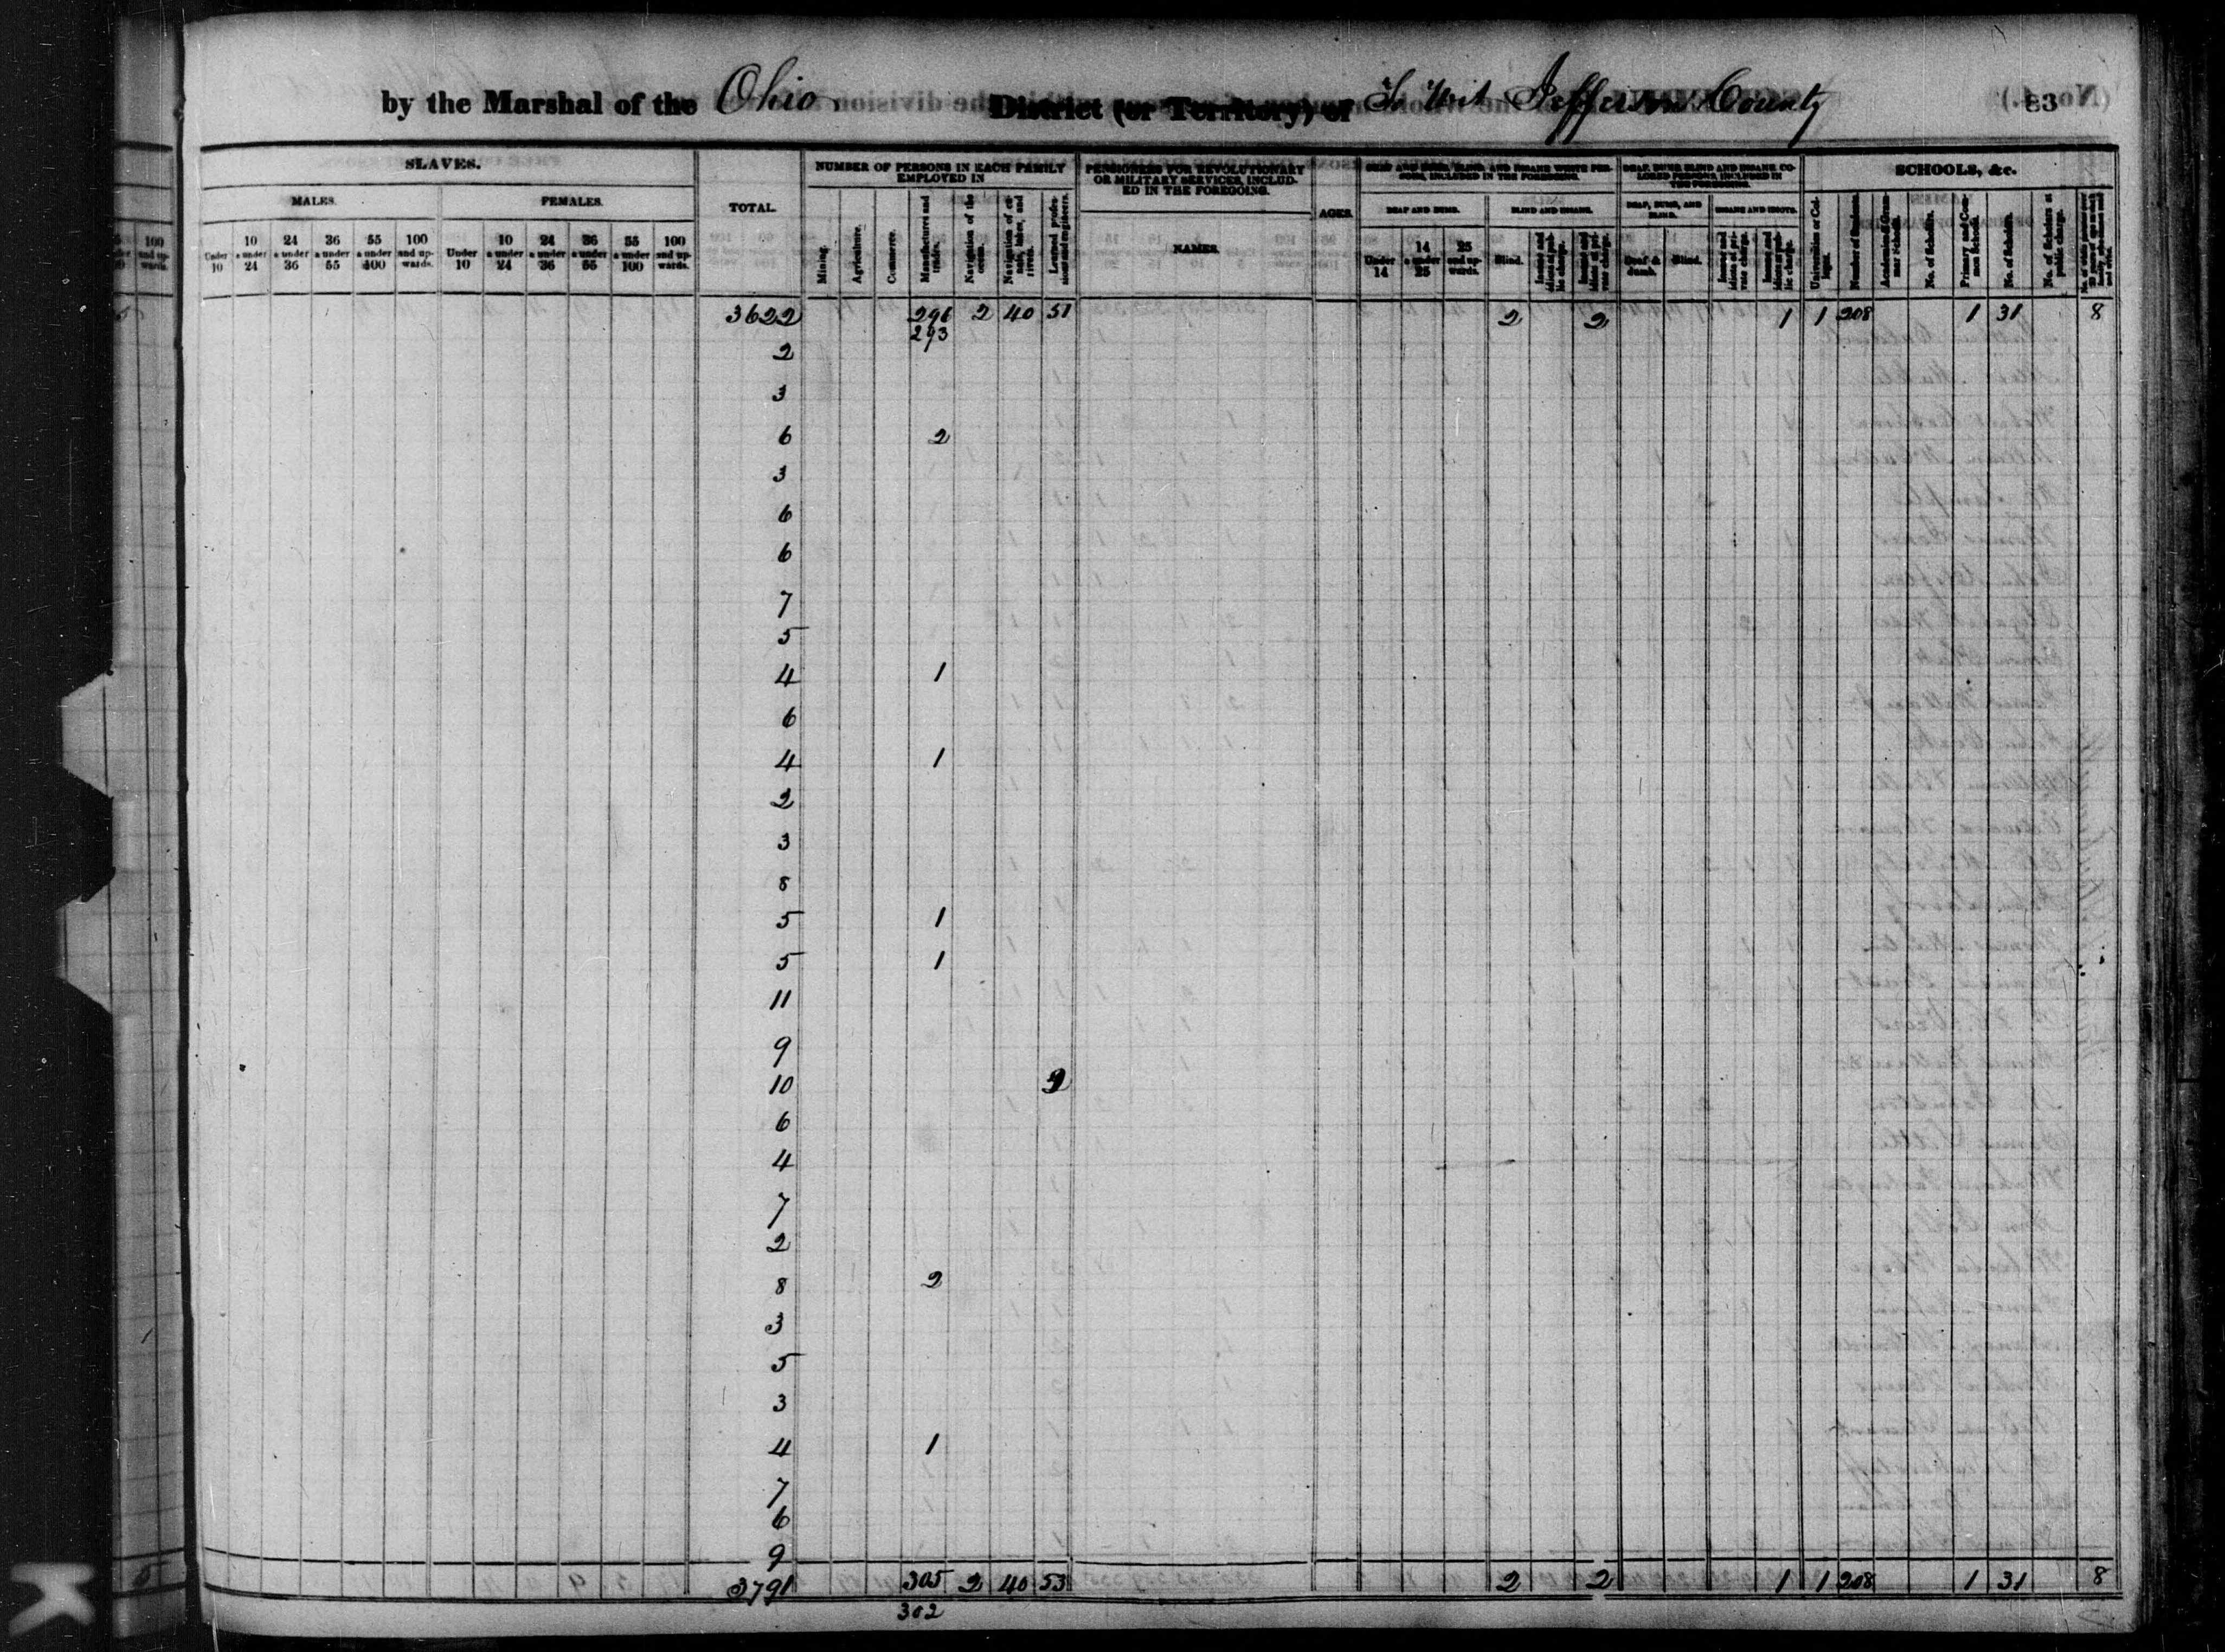 by the Marshal of the Ohio District (or Territory) of To Wit Jefferson County 83
SLAVES. TOTAL. NUMBER OF PERSONS IN EACH FAMILY EMPLOYED IN PENSIONERS FOR REVOLUTIONARY OR MILITARY SERVICES, INCLUDED IN THE FOREGOING. DEAF AND DUMB, BLIND, AND INSANE WHITE PERSONS, INCLUDED IN THE FOREGOING. DEAF, DUMB, BLIND AND INSANE COLORED PERSONS, INCLUDED IN THE FOREGOING. SCHOOLS, &c.
MALES. FEMALES. NAMES. AGES. DEAF AND DUMB. BLIND AND INSANE. DEAF, DUMB, AND BLIND. INSANE AND IDIOTS.
Under 10 10 & under 24 24 & under 36 36 & under 55 55 & under 100 100 and upwards. Under 10 10 & under 24 24 & under 36 36 & under 55 55 & under 100 100 and upwards.
Mining. Agriculture. Commerce. Manufactures and trades. Navigation of the ocean. Navigation of canals, lakes, and rivers. Learned professions and engineers.
Under 14 14 & under 25 25 and upwards. Blind. Insane and idiots at public charge. Insane and idiots at private charge. Deaf & dumb. Blind. Insane and idiots at private charge. Insane and idiots at public charge.
Universities or Colleges. Number of Students. Academies & Grammar Schools. No. of Scholars. Primary and Common Schools. No. of Scholars. No. of Scholars at public charge.
3622 296 2 40 51 2 2 1 1 208 1 31 8
293
2
3
6 2
3
6
6
7
5
4 1
6
4 1
2
3
8
5 1
5 1
11
9
10 2
6
4
7
2
8 2
3
5
3
4 1
7
6
9
3791 305 2 40 53 2 2 1 1 208 1 31 8
302